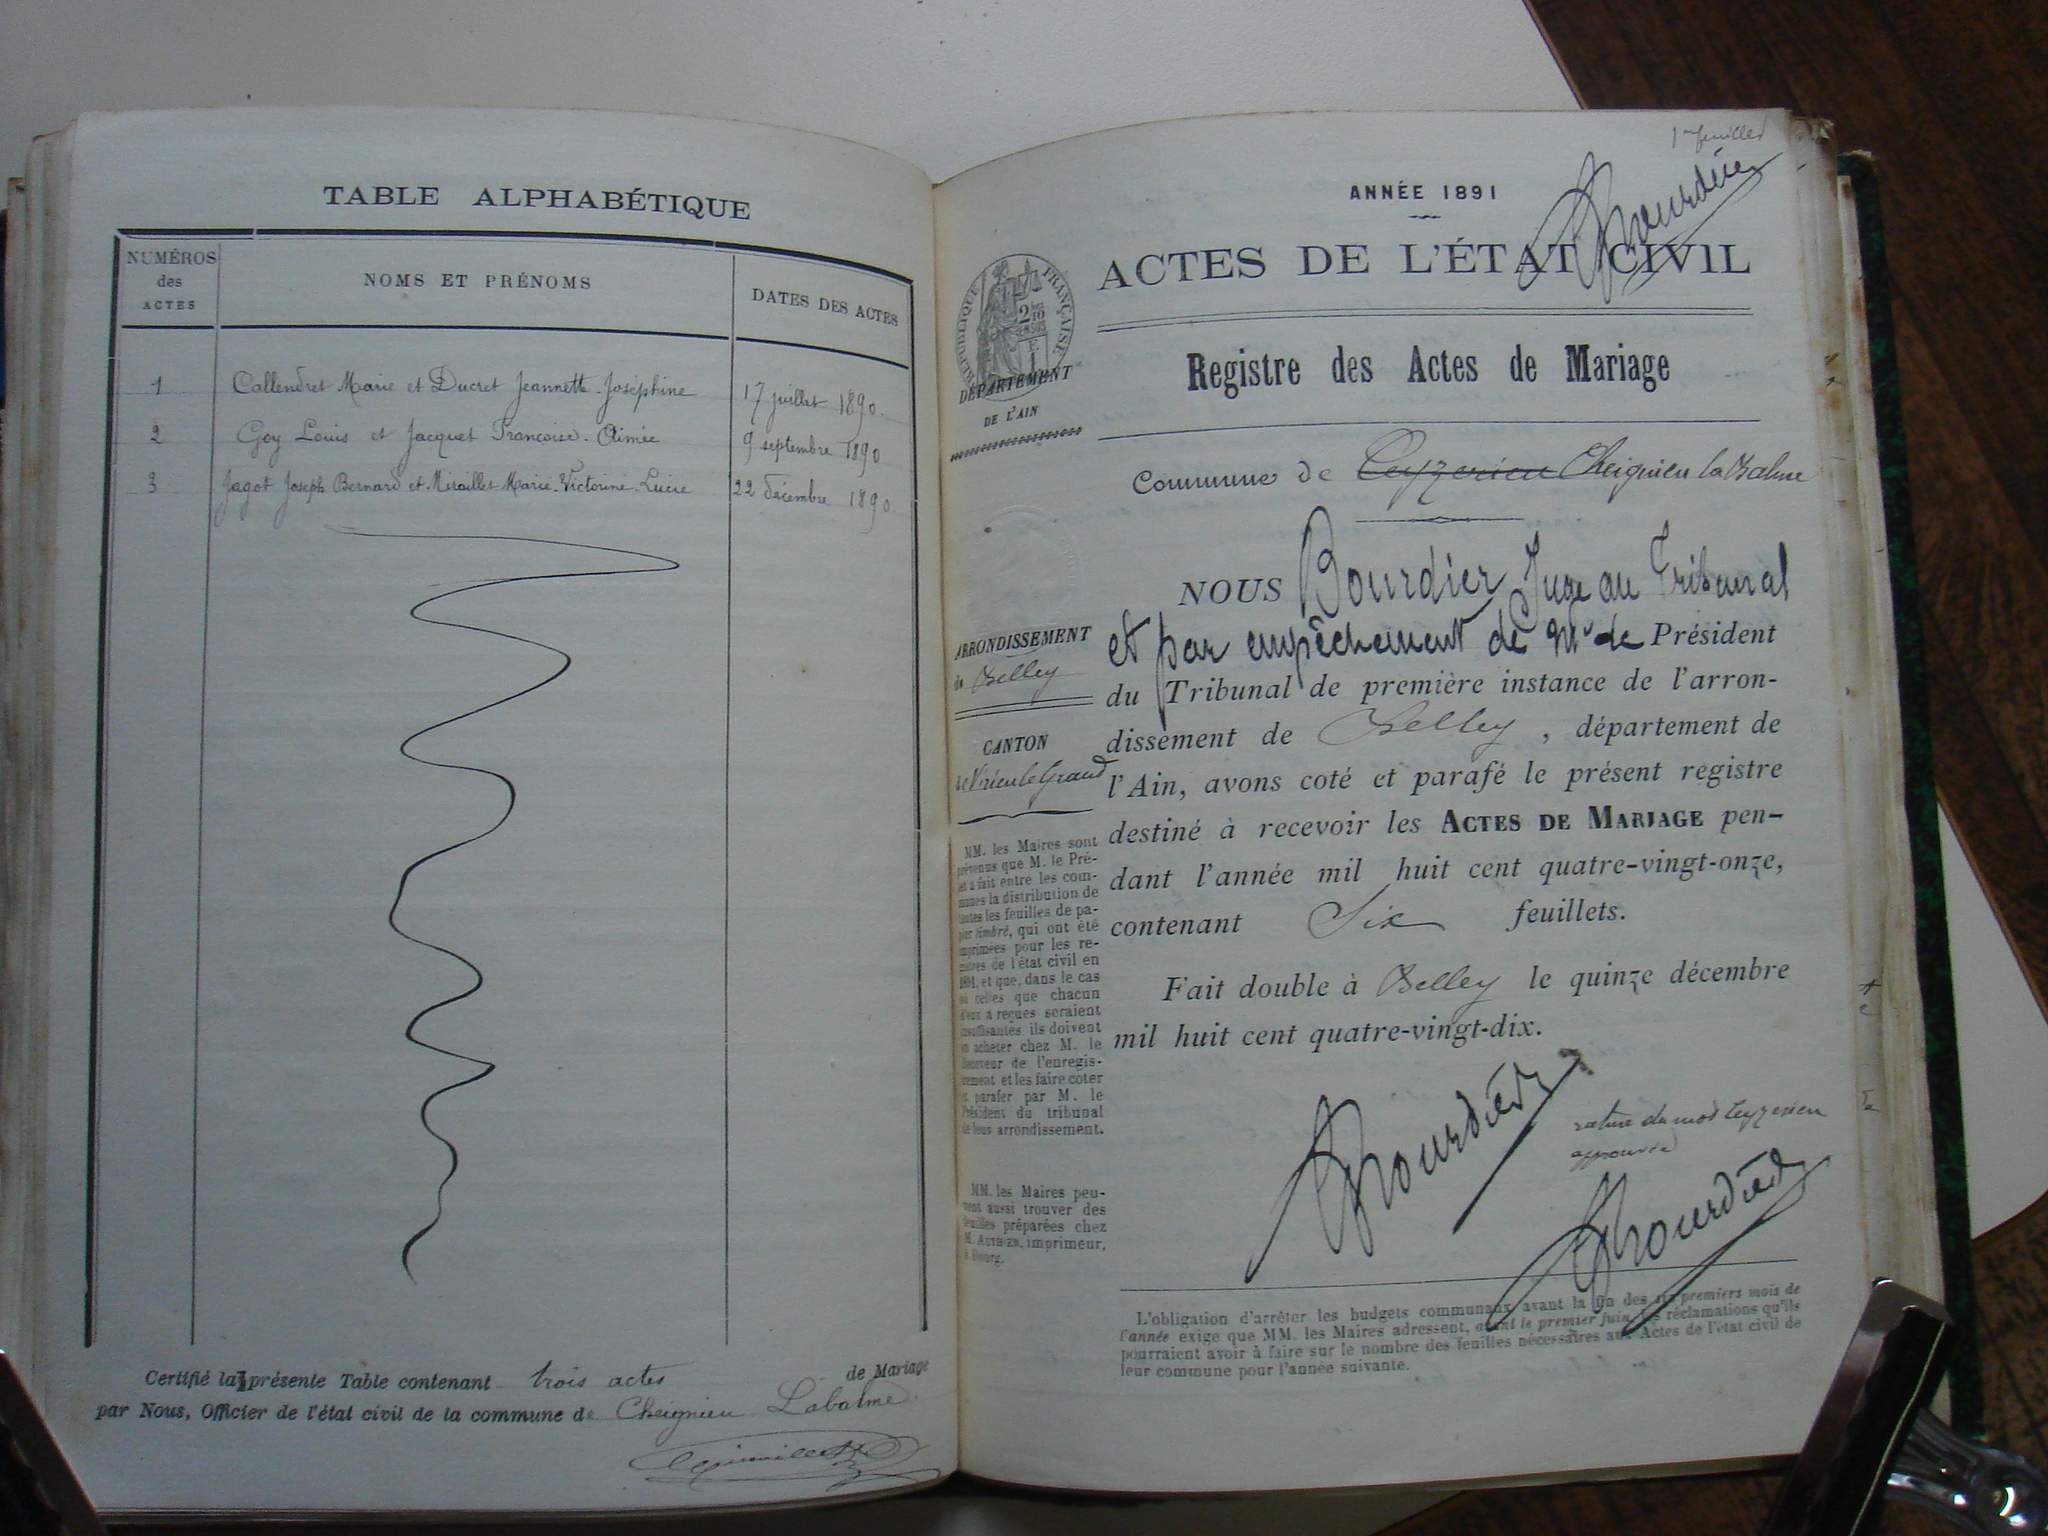 TABLE ALPHABÉTIQUE
NUMÉROS des ACTES
NOMS ET PRÉNOMS
DATES DES ACTES
1 Callendret Marie et Ducret Jeannette-Joséphine 17 juillet 1890.
2 Goy Louis et Jacquet Françoise-Aimée 9 septembre 1890
3 Jagot Joseph Bernard et Miraillet Marie-Victorine-Lucie 22 décembre 1890.
Certifié la présente Table contenant trois actes de Mariage
par Nous, Officier de l'état civil de la commune de Cheignieu Labalme.
1er feuillet
Bourdier
ANNÉE 1891
ACTES DE L'ÉTAT CIVIL
RÉPUBLIQUE FRANÇAISE
DÉPARTEMENT
DE L'AIN
Registre des Actes de Mariage
Commune de Ceyzerieu Cheignieu la Balme
NOUS Bourdier Juge au Tribunal
et par empêchement de Mr de Président
du Tribunal de première instance de l'arron-
dissement de Belley, département de
l'Ain, avons coté et parafé le présent registre
destiné à recevoir les ACTES DE MARIAGE pen-
dant l'année mil huit cent quatre-vingt-onze,
contenant Six feuillets.
Fait double à Belley le quinze décembre
mil huit cent quatre-vingt-dix.
Bourdier
rature du mot Ceyzerieu
approuvée
Bourdier
ARRONDISSEMENT
de Belley
CANTON
de Virieu le Grand
MM. les Maires sont
prévenus que M. le Pré-
et a fait entre les com-
munes la distribution de
toutes les feuilles de pa-
pier timbré, qui ont été
imprimées pour les re-
gistres de l'état civil en
1891, et que, dans le cas
où celles que chacun
d'eux a reçues seraient
insuffisantes ils doivent
en acheter chez M. le
Receveur de l'enregis-
trement et les faire coter
et parafer par M. le
Président du tribunal
de leus arrondissement.
MM. les Maires peu-
vent aussi trouver des
feuilles préparées chez
M. AUTHIER, imprimeur,
à Bourg.
L'obligation d'arrêter les budgets communaux avant la fin des six premiers mois de
l'année exige que MM. les Maires adressent, avant le premier juin, les réclamations qu'ils
pourraient avoir à faire sur le nombre des feuilles nécessaires aux Actes de l'état civil de
leur commune pour l'année suivante.